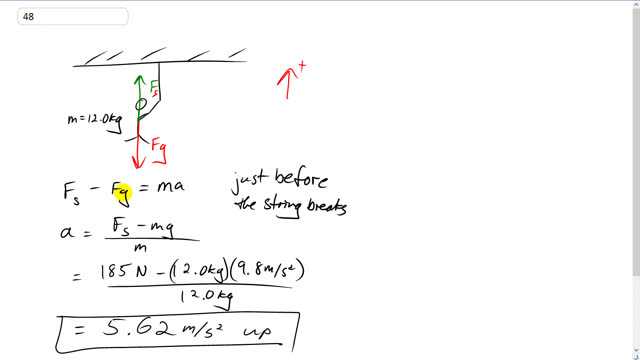 48
+
F_s
m = 12.0kg
Fg
F_s - Fg = ma
just before
the string breaks
a = F_s - mg / m
= 185 N - (12.0kg)(9.8 m/s²) / 12.0kg
= 5.62 m/s² up